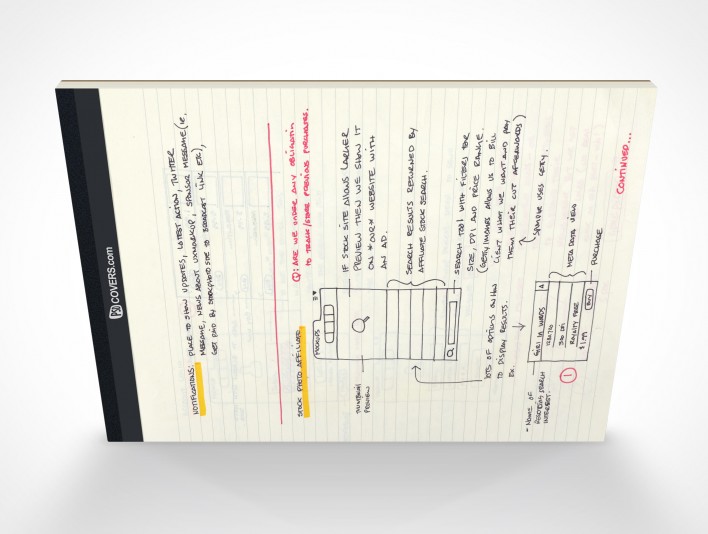 PSD COVERS.com
NOTIFICATIONS: PLACE TO SHOW UPDATES, LATEST ACTION, TWITTER
MESSAGE, NEWS ABOUT UXMARKUP, SPONSOR MESSAGE (ie.
GET PAID BY STOCKPHOTO SITE TO BROADCAST LINK ETC),
STOCK PHOTO AFFILIATE
Q: ARE WE UNDER ANY OBLIGATION
TO TRACK/STORE PREVIOUS PURCHASES.
MOCKUPS
THUMBNAIL
PREVIEW
IF STOCK SITE ALLOWS LARGER
PREVIEW THEN WE SHOW IT
ON *OUR* WEBSITE WITH
AN AD.
SEARCH RESULTS RETURNED BY
AFFILIATE STOCK SEARCH.
SEARCH TOOL WITH FILTERS FOR
SIZE, DPI AND PRICE RANGE.
(GETTY IMAGES ALLOWS US TO BILL
CLIENT WHAT WE WANT AND PAY
THEM THEIR CUT AFTERWARDS)
SAMPLE USES GETTY.
LOTS OF OPTIONS ON HOW
TO DISPLAY RESULTS.
EX.
GIRL IN WOODS
300 DPI
ROYALTY FREE
$1.99
BUY
META DATA VIEW
PURCHASE
1
- NAME OF
SEARCH
INTEREST.
CONTINUED...